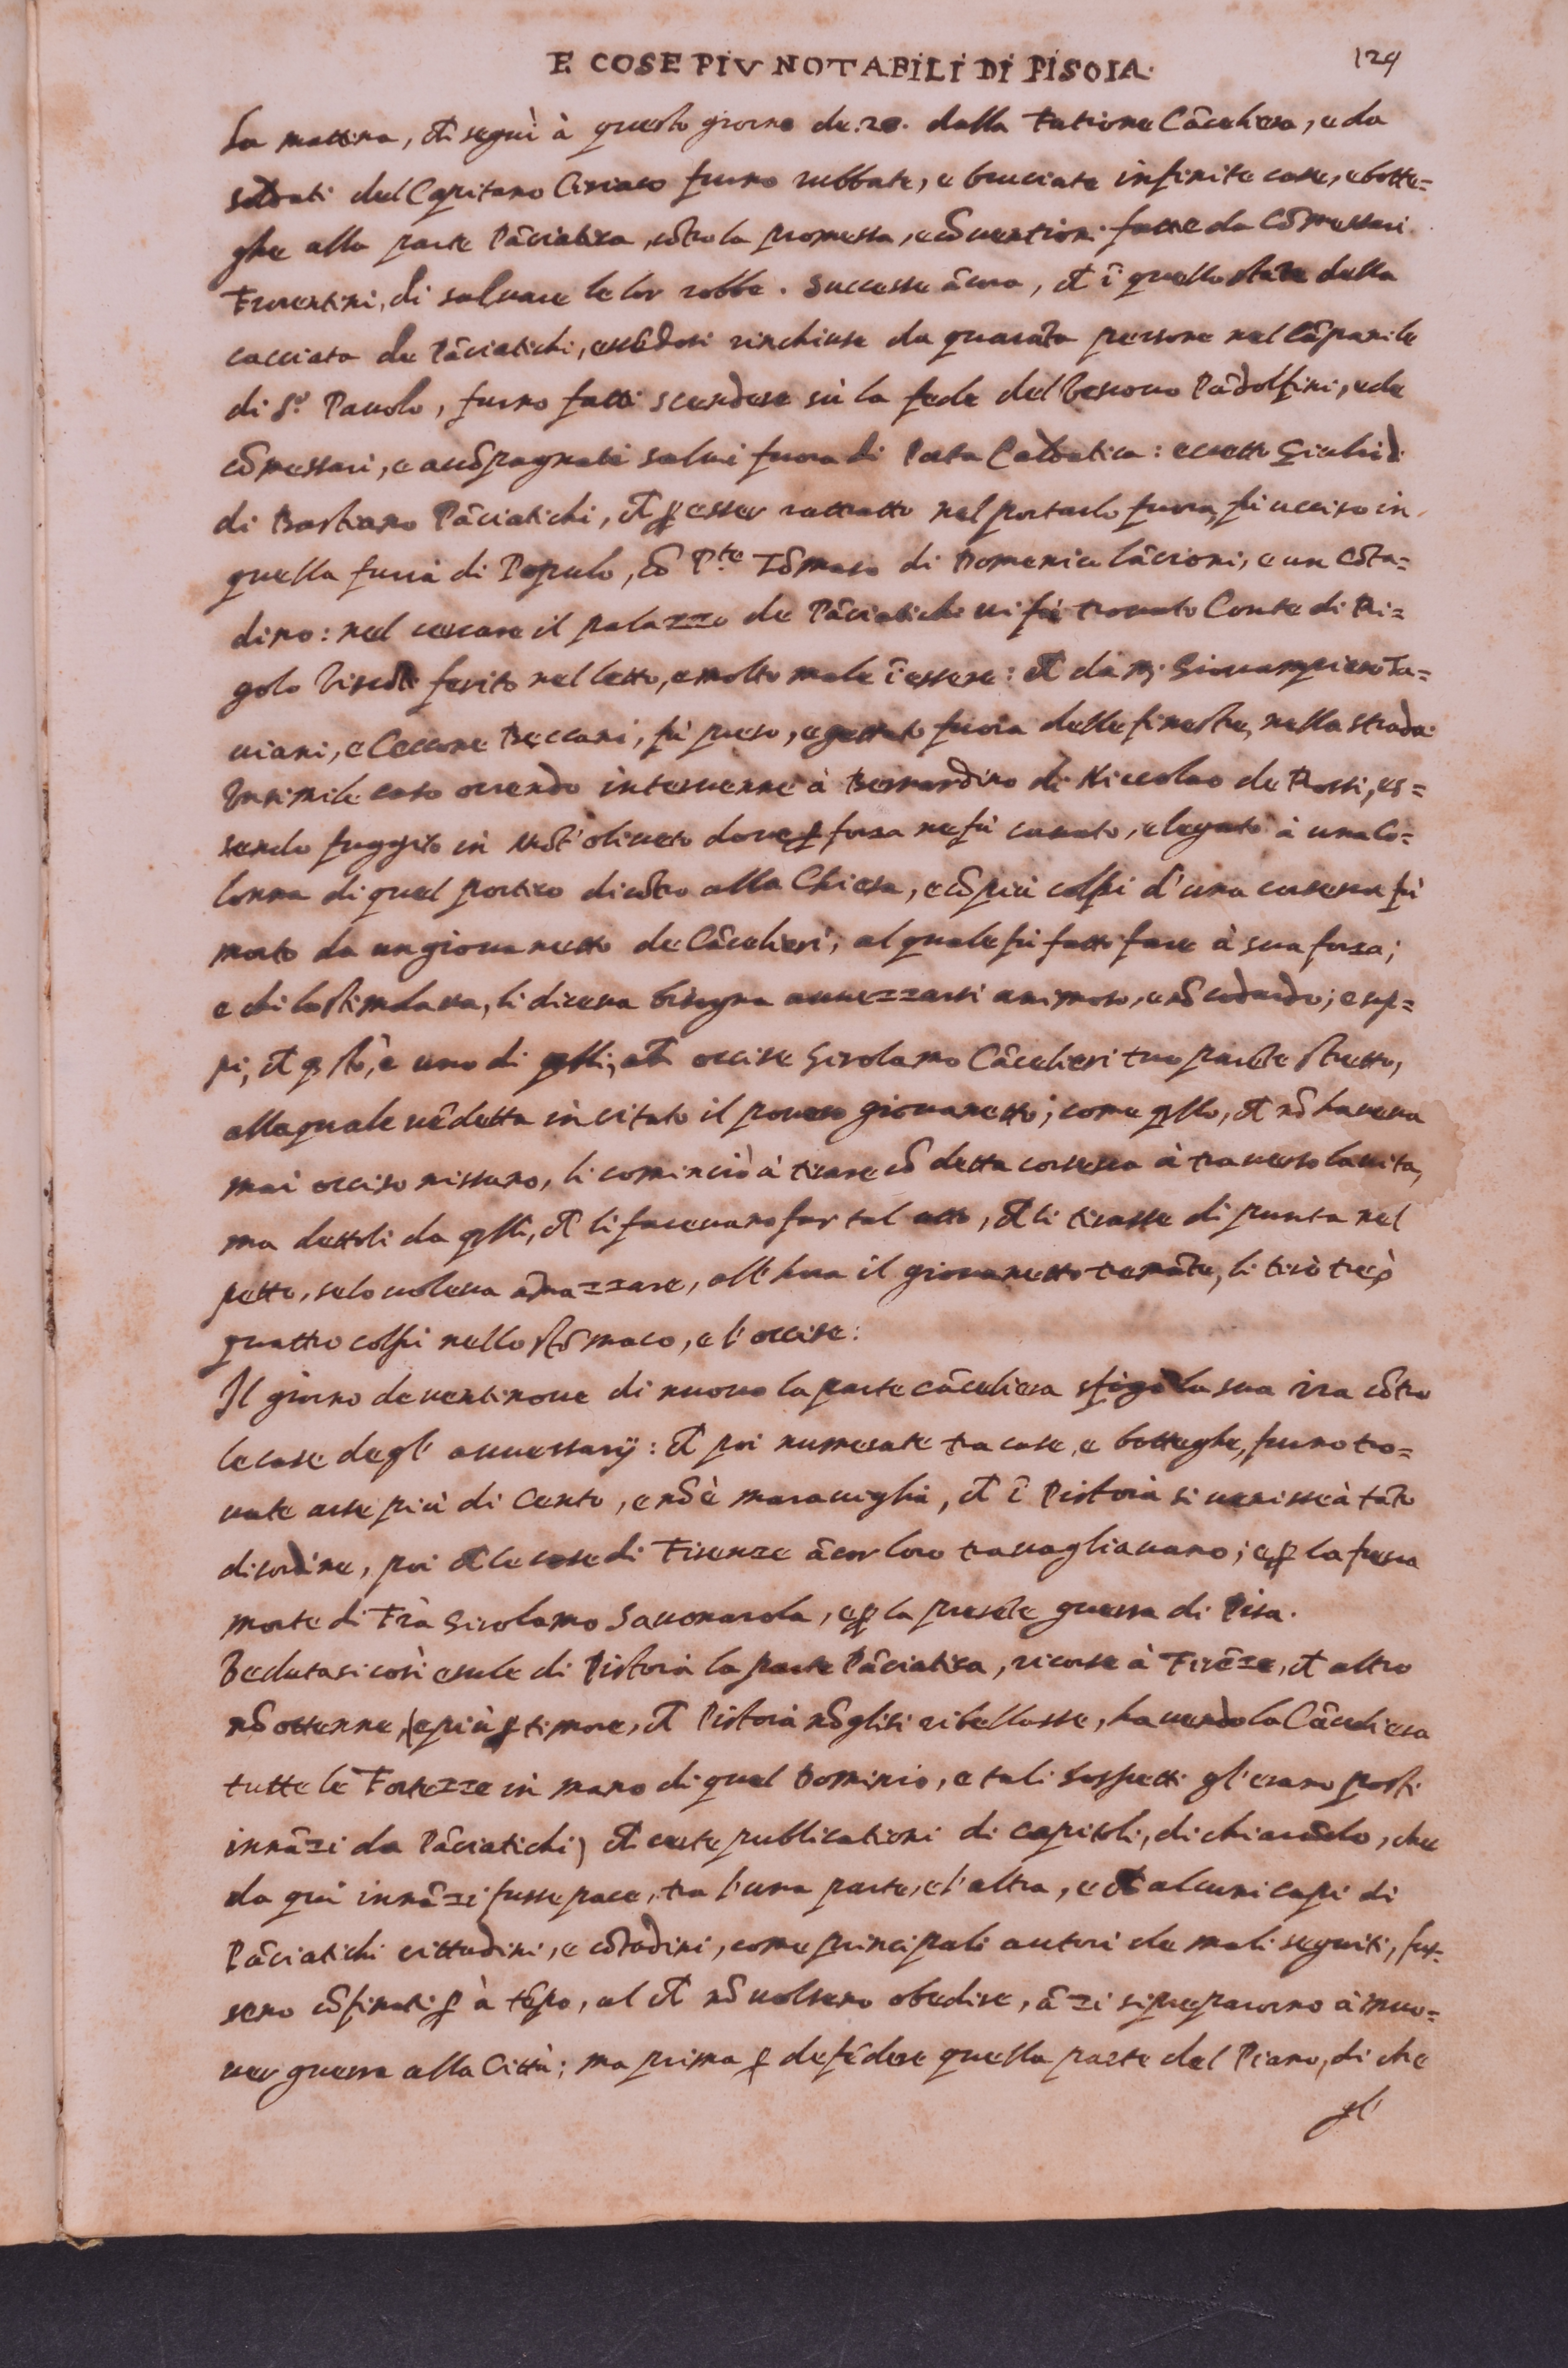 E COSE PIV NOTABILI DI PISOIA. 124
La mattina, ch̃ seguì à questo giorno de.20. dalla fatione Cãceliera, e da
soldati del Capitano Ciriaco furno rubbate, e bruciate infinite case, e botte=
ghe alla parte Pãciatica, cõtro la promessa, e cõventioni fatte da Cõmessari
Fiorentini, di salvare le lor robbe. Successe ãcora, ch̃ ĩ quello stãte della
cacciata de Pãciatichi, essẽdosi rinchiuse da quarãta persone nel Cãpanile
di S.º Pauolo, furno fatti scendere sù la fede del Vescovo Pãdolfini, e de
cõmessari, e accõpagnati salvi fuora di Porta Caldatica: eccetto Giuliã
di Bastiano Pãciatichi, ch̃ ꝑ esser rattratto nel portarlo fuora, fù ucciso in
quella furia di Populo, cõ P.te Tõmaso di Domenico lãcioni, e un cõta=
dino: nel cercare il palazzo de Pãciatichi vi fù trovato Conte di Ri=
golo Viscõti ferito nel letto, e molto male ĩ essere: ch̃ da m. Giovampiero Ta=
viani, e Ceccone Beccani, fù preso, e gettato fuora delle finestre, nella strada.
Un simile caso orrendo intervenne à Bernardino di Niccolao de Rossi, es=
sendo fuggito in Mõt'oliveto dove ꝑ forza ne fù cavato, e legato à una co=
lonna di quel portico dicõtro alla Chiesa, e cõ più colpi d'una corsesca fù
morto da un giovanetto de Cãcelieri, al quale fù fatto fare à sua forza;
e chi lo stimolava, li diceva bisogna avvezzarsi animoso, e nõ codardo; e sap=
pi, ch̃ qsto, è uno di qlli, ch̃ occise Girolamo Cãcelieri tuo parẽte stretto,
alla quale vẽdetta incitato il povero giovanetto; come qllo, ch̃ nõ haveva
mai occiso nissuno, li cominciò à tirare cõ detta corsesca à traverso la vita,
ma dettoli da qlli, ch̃ li facevano far tal atto, ch̃ li tirasse di punta nel
petto, se lo voleva ãmazzare, all'hora il giovanetto tremãte, li tirò tre, ò
quattro colpi nello stõmaco, e l'occise:
Il giorno de ventinove di nuovo la parte cãceliera sfigò la sua ira cõtro
le case degl'avversarij: ch̃ poi numerate tra case, e botteghe, furno tro=
vate arse più di Cento, e nõ è maraviglia, ch̃ ĩ Pistoia si venisse à tãto
disordine, poi ch̃ le cose di Firenze ãcor loro travagliavano; e ꝑ la fresca
morte di Frà Girolamo Savonarola, e ꝑ la presẽte guerra di Pisa.
Vedutasi così esule di Pistoia la parte Pãciatica, ricorse à Firẽze, ch̃ altro
nõ ottenne, (e più ꝑ timore, ch̃ Pistoia nõ gli si ribellasse, havendo la Cãceliera
tutte le Fortezze in mano di quel Dominio, e tali sospetti gl'erano posti
innãzi da Pãciatichi) ch̃ certe publicationi di capitoli, dichiarãdo, che
da qui innãzi fusse pace, tra l'una parte, e l'altra, e ch̃ alcuni capi di
Pãciatichi cittadini, e cõtadini, come principali autori de mali seguiti, fus=
sero cõfinati ꝑ à tẽpo, al ch̃ nõ volsero obedire, ãzi si prepararno à muo=
ver guerra alla Città; ma prima ꝑ defẽdere quella parte del Piano, di che
gl'